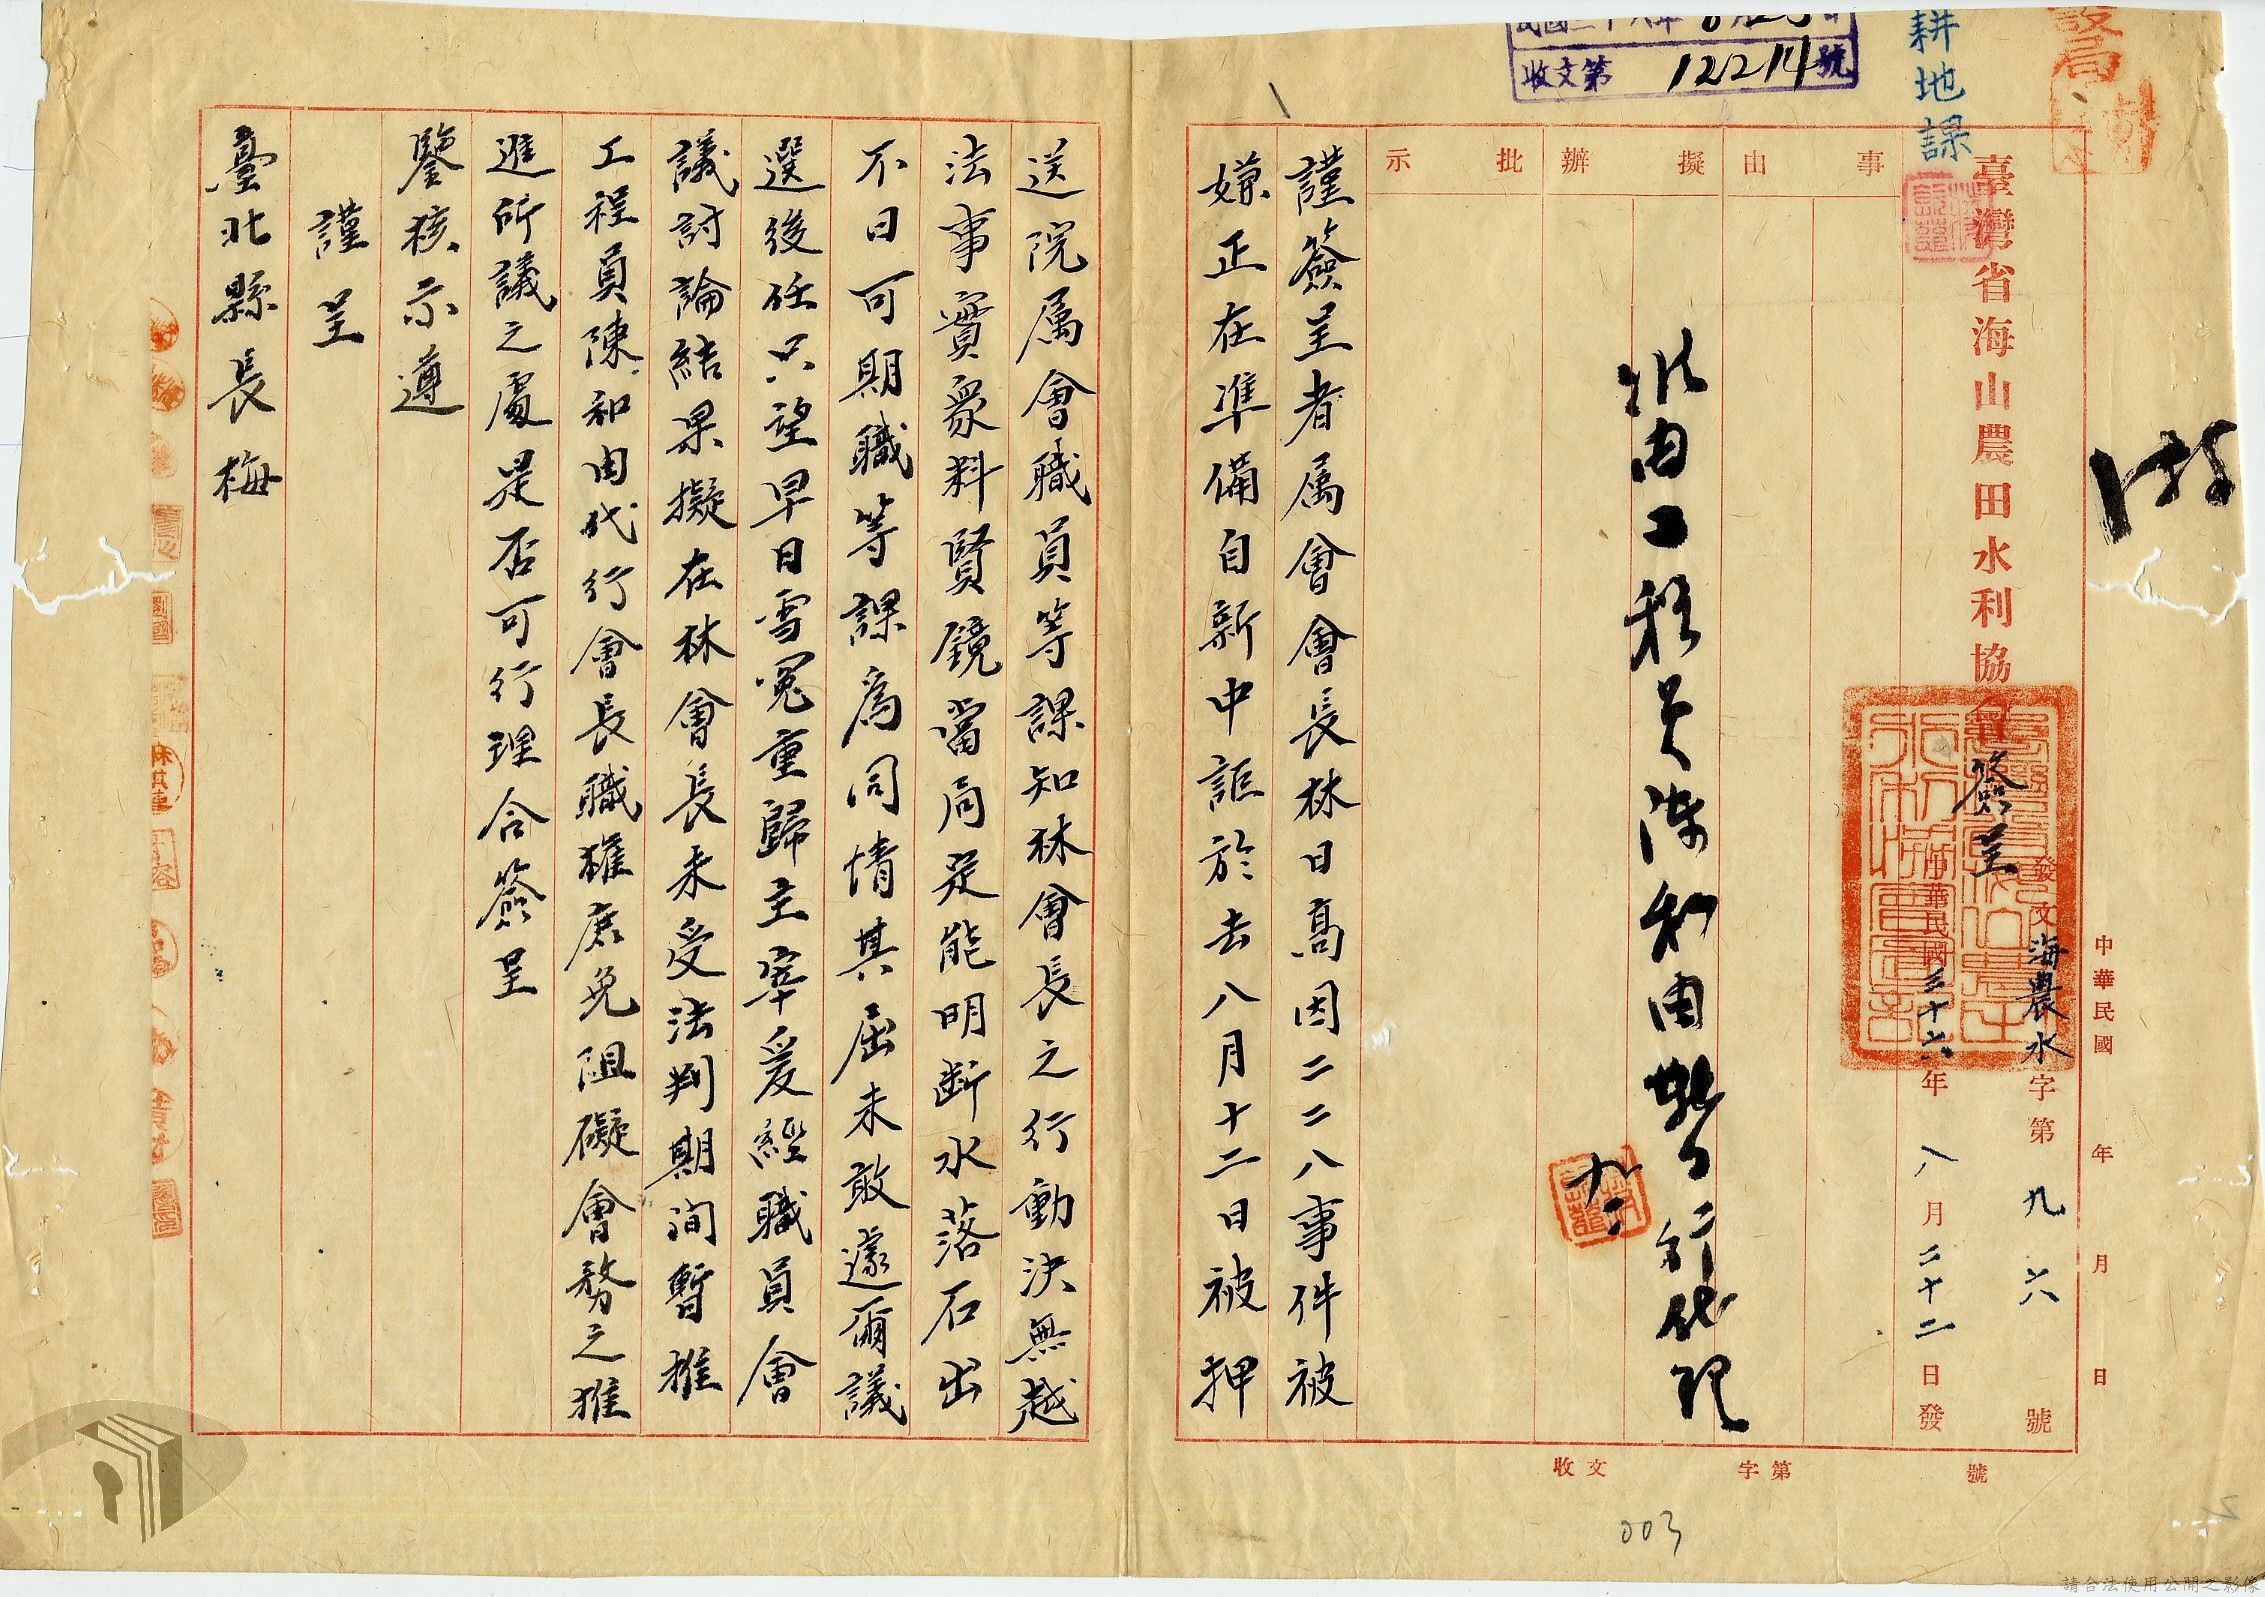 收文第12214號
耕地課
臺灣省海山農田水利協會 簽呈
中華民國 年 月 日
發文海農水字第九六號
中華民國三十六年八月二十二日發
事由
擬辦
批示
准由工程員陳和由暫行代理
九、二
謹簽呈者属會會長林日高因二二八事件被
嫌正在準備自新中詎於去八月十二日被押
送院属會職員等課知林會長之行動決無越
法事實衆料賢鏡當局定能明断水落石出
不日可期職等課為同情其屈未敢遽爾議
選後任只望早日雪冤重歸主宰爰經職員會
議討論結果擬在林會長未受法判期间暫推
工程員陳和由代行會長職權庶免阻礙會務之推
進所議之處是否可行理合簽呈
鑒核示遵
謹呈
臺北縣長梅
收文 字第 號
003
請合法使用公開之影像